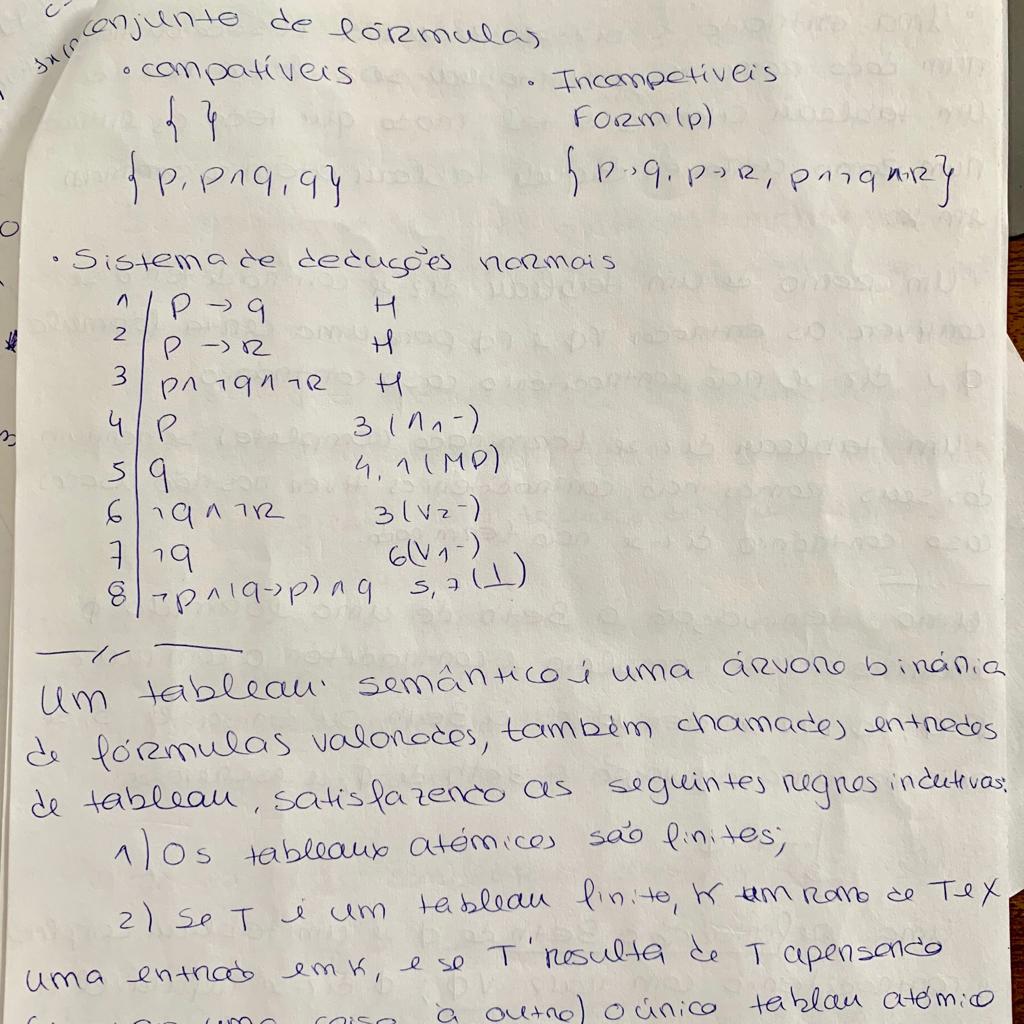 conjunto de fórmulas
• compatíveis • Incompatíveis
{ } Form(p)
{ p, p∧q, q} { p→q, p→r, p∧¬q∧¬r}
• Sistema de deduções normais
1 p → q H
2 p → r H
3 p∧¬q∧¬r H
4 p 3 (∧1-)
5 q 4, 1 (MP)
6 ¬q∧¬r 3 (∨2-)
7 ¬q 6(∨1-)
8 ¬p∧(q→p)∧q 5, 7 (⊥)
Um tableau semântico é uma árvore binária
de fórmulas valoradas, também chamadas entradas
de tableau, satisfazendo as seguintes regras indutivas:
1) Os tableaux atómicos são finitos;
2) Se T é um tableau finito, K um ramo de T e X
uma entrada em K, e se T' resulta de T apensando
uma coisa à outra) o único tableau atómico